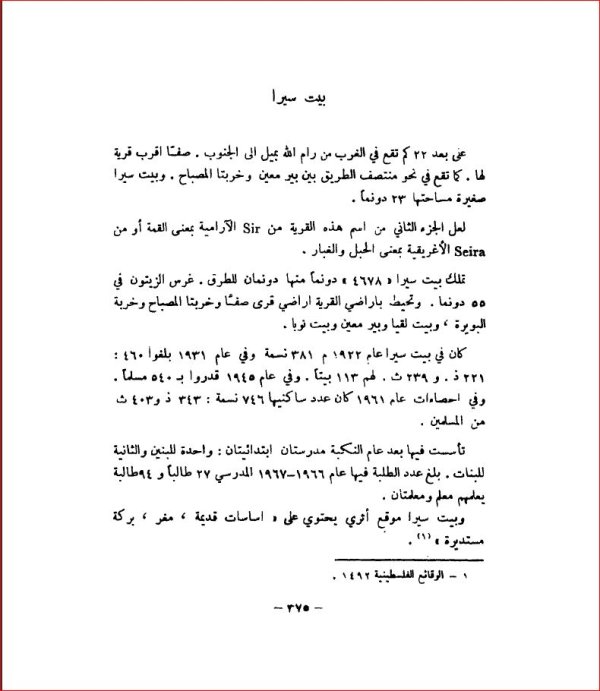 بيت سيرا
على بعد ٢٢ كم تقع في الغرب من رام الله بميل الى الجنوب . صفـّا اقرب قرية
لها . كما تقع في نحو منتصف الطريق بين بير معين وخربتا المصباح . وبيت سيرا
صغيرة مساحتها ٢٣ دونماً .
لعل الجزء الثاني من اسم هذه القرية من Sir الآرامية بمعنى القمة أو من
Seira الأغريقية بمعنى الحبل والغبار .
تملك بيت سيرا « ٤٦٧٨ » دونماً منها دونمان للطرق . غرس الزيتون في
٥٥ دونما . وتحيط باراضي القرية اراضي قرى صفـّا وخربتا المصباح وخربة
البويرة ، وبيت لقيا وبير معين وبيت نوبا .
كان في بيت سيرا عام ١٩٢٢ م ٣٨١ نسمة وفي عام ١٩٣١ بلغوا ٤٦٠ :
٢٢١ ذ . و ٢٣٩ ث . لهم ١١٣ بيتاً . وفي عام ١٩٤٥ قدروا بـ ٥٤٠ مسلماً .
وفي احصاءات عام ١٩٦١ كان عدد ساكنيها ٧٤٦ نسمة : ٣٤٣ ذ و٤٠٣ ث
من المسلمين .
تأسست فيها بعد عام النكبة مدرستان ابتدائيتان : واحدة للبنين والثانية
للبنات . بلغ عدد الطلبة فيها عام ١٩٦٦-١٩٦٧ المدرسي ٢٧ طالباً و ٩٤طالبة
يعلمهم معلم ومعلمتان .
وبيت سيرا موقع أثري يحتوي على « اساسات قديمة ، مغر ، بركة
مستديرة » (١) .
١ - الوقائع الفلسطينية ١٤٩٢ .
- ٣٧٥ -